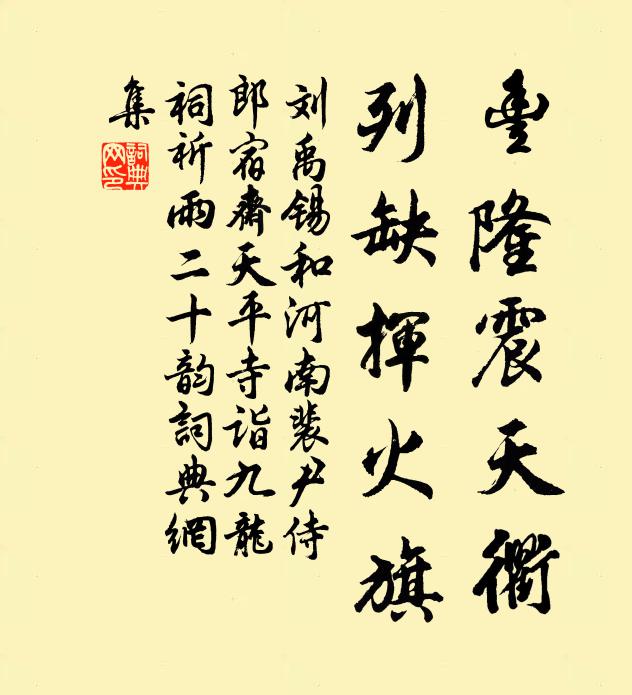 豐隆震天衢
列缺揮火旗
刘禹锡和河南裴尹侍
郎宿齋天平寺詣九龍
祠祈雨二十韵詞典網
集
詞典網印